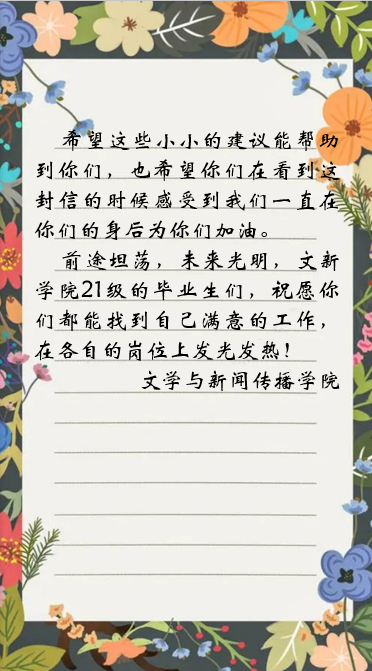 希望这些小小的建议能帮助
到你们，也希望你们在看到这
封信的时候感受到我们一直在
你们的身后为你们加油。
前途坦荡，未来光明，文新
学院21级的毕业生们，祝愿你
们都能找到自己满意的工作，
在各自的岗位上发光发热！
文学与新闻传播学院